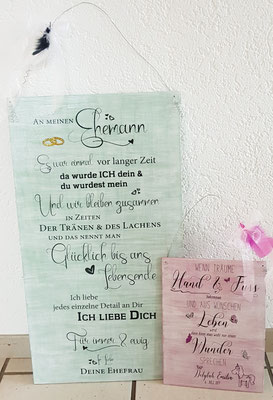 AN MEINEN
Ehemann
Es war einmal vor langer Zeit
da wurde ICH dein &
du wurdest mein
Und wir bleiben zusammen
IN ZEITEN
DER TRÄNEN & DES LACHENS
UND DAS NENNT MAN
Glücklich bis ans
Lebensende
Ich liebe
jedes einzelne Detail an Dir
ICH LIEBE DICH
Für immer & ewig
DEINE EHEFRAU
WENN TRÄUME
Hand & Fuss
bekommen
UND AUS WÜNSCHEN
Leben
wird
Wunder
SPRECHEN